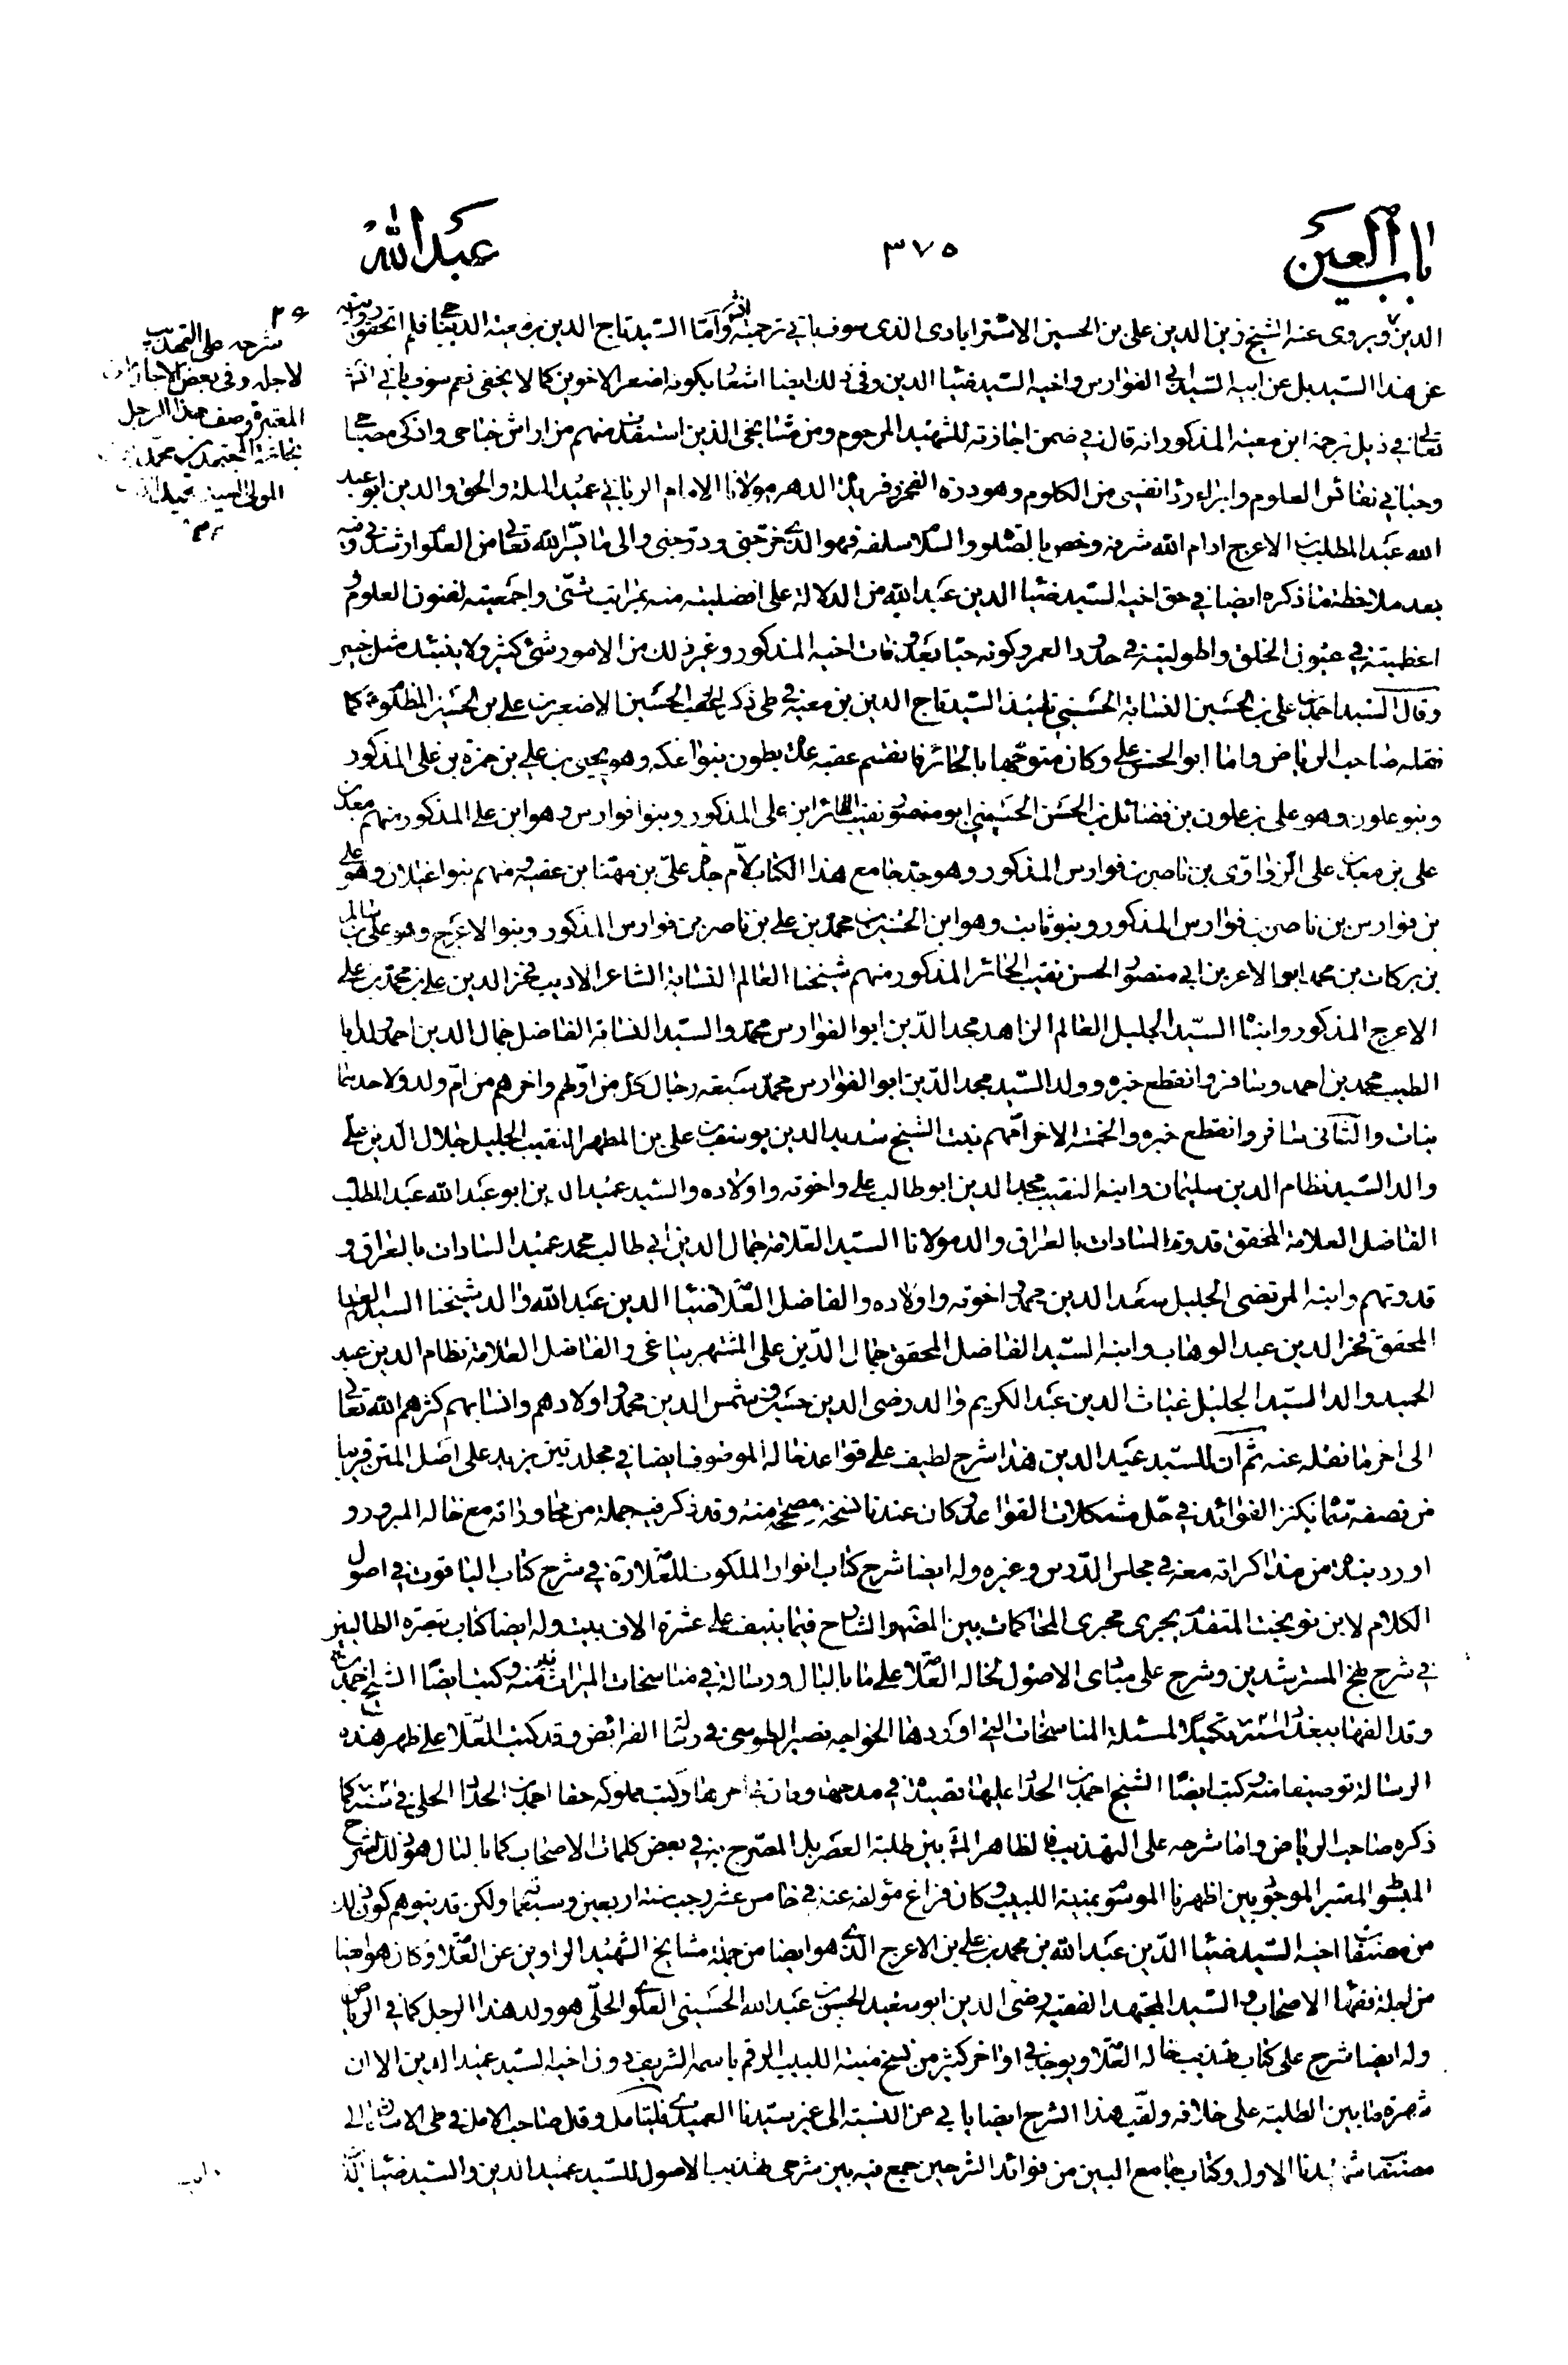 باب العين
٣٧٥
عبد الله
الدين ويروى عنه الشيخ زين الدين على بن الحسين الاسترابادى الذى سوف ياتى فى ترجمته واما السيد تاج الدين بن معية الديباجى فلم اتحقق روايته
عن هذا السيد بل عن ابيه السيد ابى الفوارس واخيه السيد ضياء الدين وفى ذلك ايضا اشعار بكونه اصغر الاخوين كما لا يخفى نعم سوف ياتى انش
تعالى فى ذيل ترجمة ابن معية المذكور انه قال فى ضمن اجازته للشهيد المرحوم ومن مشايخى الذين استفدت منهم من اراش جناحى واذكى مصباحى
وحبانى نفائس العلوم وابراء نفسى من الكلوم وهو درة الفخر وفريدة الدهر مولانا الامام الربانى عميد الملة والحق والدين ابو عبد
الله عبد المطلب بن الاعرج ادام الله شرفه وخص بالصلوة والسلام سلفه فهو الذى خرجنى ودرجنى والى ما يسر الله تعالى من العلوم ارشدنى وفيه
بعد ملاحظة ما ذكره ايضا فى حق اخيه السيد ضياء الدين عبد الله من الدلالة على افضليته منه بمراتب شتى واجمعيته لفنون العلوم و
اعظميته فى عيون الخلق واطوليته فى حدود العمر وكونه حيا بعد وفات اخيه المذكور وغير ذلك من الامور شئ كثير ولا ينبئك مثل خبير
وقال السيد احمد بن على بن الحسين النسابة الحسينى تلميذ السيد تاج الدين بن معية فى طى ذكر عقب الحسين الاصغر بن على بن الحسين المظلوم كما
نقله صاحب الرياض واما ابو الحسن على وكان متوجها بالحائر فانقسم عقبه على بطون بنوا عكه وهو يحيى بن على بن حمزة بن على المذكور
وبنو علون وهو على بن علون بن فضائل بن الحسن الحسينى ابو منصور نقيب الحائر ابن على المذكور وبنوا فوارس وهو ابن على المذكور منهم معد بن
على بن معد بن على الزواوى بن ناصر بن فوارس المذكور وهو جد جامع هذا الكتاب لام جده على بن مهنا بن عقبه منهم بنوا غيلان وهو على
بن فوارس بن ناصر بن فوارس المذكور وبنو ثابت وهو ابن الحسين بن محمد بن على بن ناصر بن فوارس المذكور وبنوا الاعرج وهو على بن سالم
بن بركات بن محمد ابو الاعز بن ابى منصور الحسن نقيب الحائر المذكور منهم شيخنا العالم النسابة الشاعر الاديب فخر الدين على بن محمد بن على
الاعرج المذكور وابنه السيد الجليل العالم الزاهد مجد الدين ابو الفوارس محمد والسيد النسابة الفاضل جمال الدين احمد ابا
الطيب محمد بن احمد وسافر وانقطع خبره وولد السيد مجد الدين ابو الفوارس محمد سبعة رجال كل من اولهم واخرهم من ام ولد ولاحدهما
بنات والثانى سافر وانقطع خبره والخمسة الاخر امهم بنت الشيخ سديد الدين يوسف بن على بن المطهر النقيب الجليل جلال الدين على
والد السيد نظام الدين سليمان وابنه النقيب مجد الدين ابو طالب على واخوته واولاده والسيد عميد الدين ابو عبد الله عبد المطلب
الفاضل العلامة المحقق قدوة السادات بالعراق والد مولانا السيد العلامة جمال الدين ابى طالب محمد عميد السادات بالعراق و
قدوتهم وابنه المرتضى الجليل سعد الدين محمد واخوته واولاده والفاضل العلامة ضياء الدين عبد الله والد شيخنا السيد العالم
المحقق فخر الدين عبد الوهاب وابنه السيد الفاضل المحقق جمال الدين على المشتهر بناغى والفاضل العلامة نظام الدين عبد
الحميد والد السيد الجليل غياث الدين عبد الكريم والد رضى الدين حسين وشمس الدين محمد واولادهم وانسابهم كثرهم الله تعالى
الى اخر ما نقله عنه ثم ان للسيد عميد الدين هذا شرح لطيف على قواعد خاله الموصوف ايضا فى مجلدتين يزيد على اصل المتن قريبا
من نصفه سماه بكنز الفوائد فى حل مشكلات القواعد وكان عندنا نسخة مصححة منه وقد ذكر فيه جملة من محاوراته مع خاله المبرور و
اورد نبذة من مذاكراته معه فى مجلس الدرس وغيره وله ايضا شرح كتاب انوار الملكوت للعلامة فى شرح كتاب الياقوت فى اصول
الكلام لابن نوبخت المتقدم يجرى مجرى المحاكمات بين المصنف والشارح فيما ينيف على عشرة الاف بيت وله ايضا كتاب تبصرة الطالبين
فى شرح نهج المسترشدين وشرح على مبادى الاصول لخاله العلامة على ما بالبال ورسالة فى مناسخات الميراث منه وكتب ايضا الشيخ احمد بن
وقد الفها ببغداد سنة تكميلا لمسئلة المناسخات التى اوردها الخواجه نصير الطوسى فى رسالة الفرائض وقد كتب العلامة على ظهر هذه
الرسالة توصيفا منه وكتب ايضا الشيخ احمد بن الحداد عليها قصيدة فى مدحها وكتب مملوكه حقا احمد بن الحداد الحلى فى سنة كما
ذكره صاحب الرياض واما شرحه على التهذيب فالظاهر المش بين طلبة العصر بل المصرح به فى بعض كلمات الاصحاب كما بالبال هو ذلك الشرح
المبسوط المعتبر الموجود بين اظهرنا الموسوم بمنية اللبيب وكان فراغ مؤلفه عنه فى خامس عشر رجب سنة اربعين وسبعماة ولكن قد يتوهم كون ذلك
من مصنفات اخيه السيد ضياء الدين عبد الله بن محمد بن على بن الاعرج الذى هو ايضا من جملة مشايخ الشهيد الراوين عن العلامة وكان هو ايضا
من اجلة فقهاء الاصحاب والسيد المجتهد الفقيه رضى الدين ابو سعيد الحسن بن عبد الله الحسينى العلوى الحلى هو ولد هذا الرجل كما فى الرياض
وله ايضا شرح على كتاب تهذيب خاله العلامة ويوجد فى اواخر كثير من نسخ منية اللبيب الرقم باسمه الشريف دون اخيه السيد عميد الدين الا ان
شهرة ما بين الطلبة على خلافه ولقب هذا الشرح ايضا يابى عن النسبة الى غير سيدنا العميدى فليتامل وقال صاحب الامل فى طى الاشارة الى
مصنفات شهيدنا الاول وكتاب جامع البين من فوائد الشرحين جمع فيه بين شرحى تهذيب الاصول للسيد عميد الدين والسيد ضياء الدين
شرحه على التهذيب
لاجله وفى بعض الاجازات
المعتبرة وصف هذا الرجل
بخاتمة المجتهدين محمد بن
المولى السيد عميد الدين